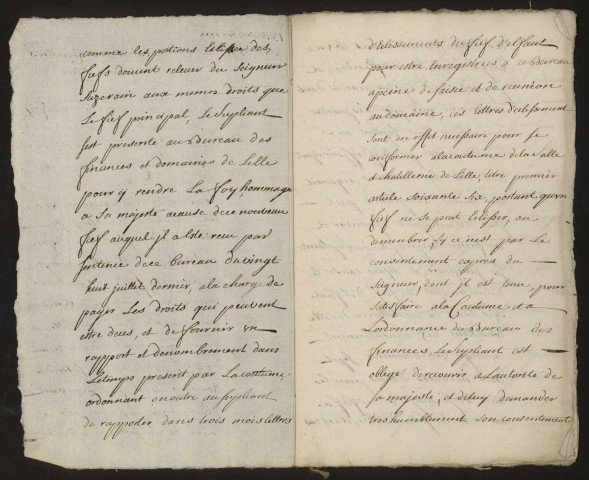 comme les portions Eclissées des
fiefs doivent relever du Seigneur
Suzerain aux memes droits que
Le fief principal, Le Supliant
sest presenté au Bureau des
finances et domaines de Lille
pour ÿ rendre La foy, hommage
a Sa majesté acause dece nouveau
fief auquel jl a Esté receu par
sentence dece Bureau du vingt
huit juillet dernier, ala charge de
payer Les droits qui peuvent
estre deus, et de fournir un
rapport et denombrement dans
Letemps prescrit par Lacoutume,
ordonnant enoutre auSupliant
de rapporter dans trois mois lettres
d'Eclissements du fief d'elfaut
pour estre Enregistrées a ce Bureau
apeine de saisie et de reunion
audomaine, ces lettres d'eclissement
sont en effet necessaires pour se
conformer alacoutume dela salle
et chatellenie de Lille, titre premier
article soixante six, portant qu'un
fief ne se peut Eclisser, ou
demembrer sy ce n'est par Le
consentement exprés du
Seigneur, dont jl est tenu, pour
satisfaire ala Coutume et a
Lordonnance du Bureau des
finances, Le Supliant est
obligé derecourir a Lautorité de
sa majesté, et deluy demander
tres humblement son consentement